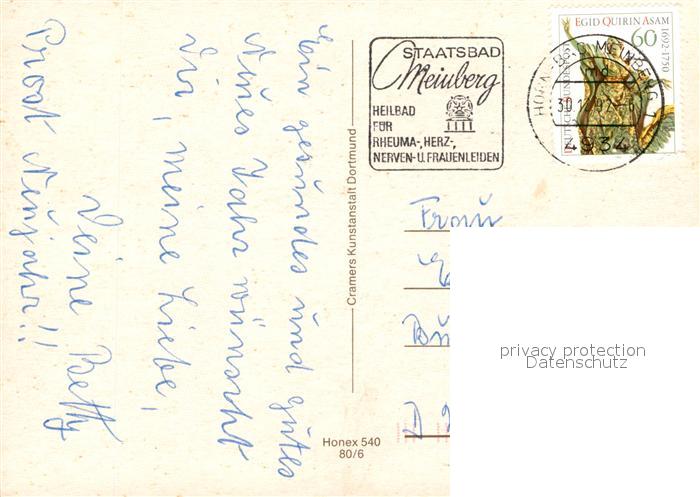 Ein gesundes und gutes
Neues Jahr wünscht
Dir, meine Liebe,
Deine Betty
Prost Neujahr!!
Cramers Kunstanstalt Dortmund
Honex 540
80/6
STAATSBAD
Meinberg
HEILBAD
FÜR
RHEUMA-, HERZ-,
NERVEN- U. FRAUENLEIDEN
HORN-BAD MEINBERG 1
30.12.92
4934
EGID QUIRIN ASAM
1692-1750
60
DEUTSCHE BUNDESPOST
Frau
D
privacy protection
Datenschutz